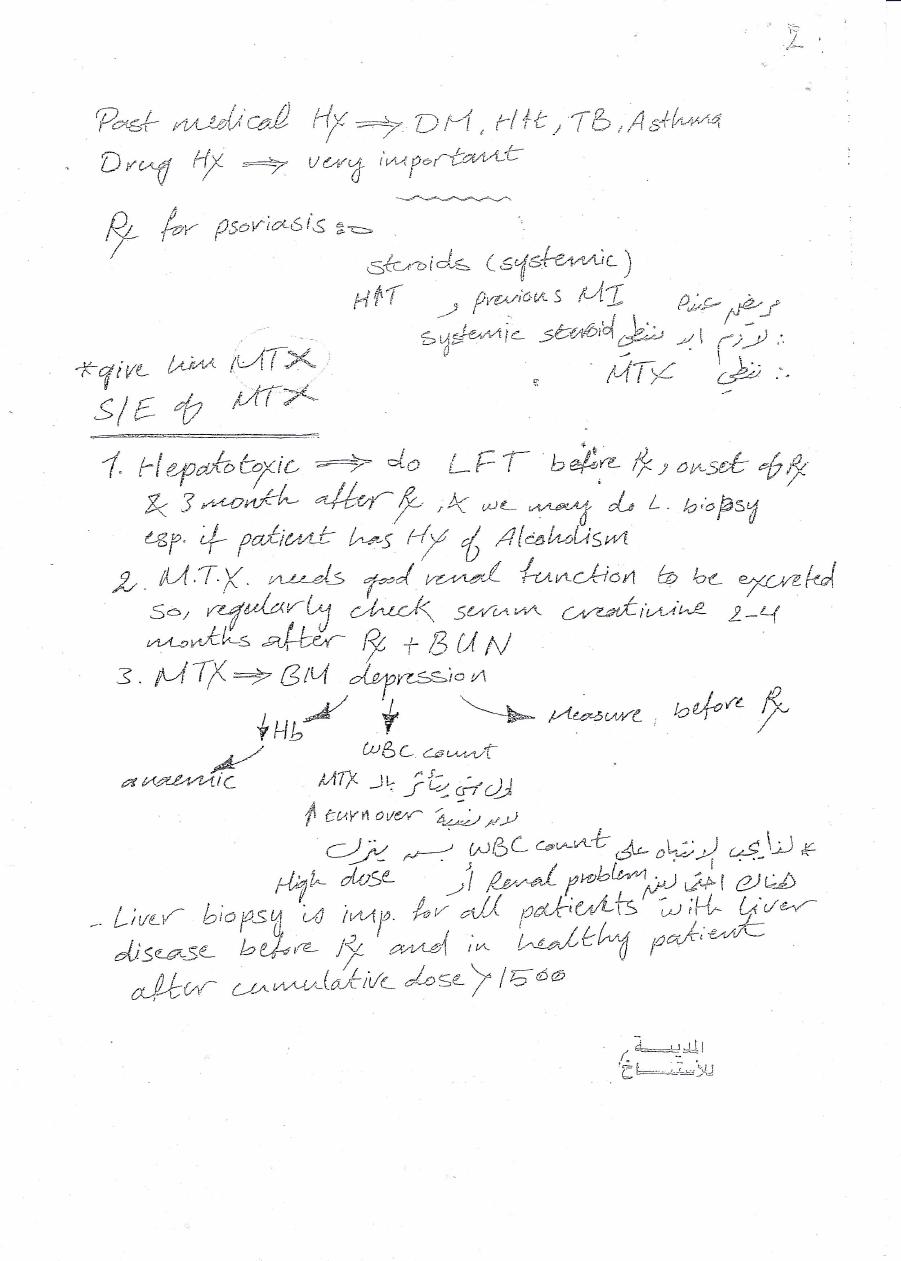 2
Past medical Hx ⇒ DM, HTN, TB, Asthma
Drug Hx ⇒ very important
Rx for psoriasis :-
steroids (systemic)
مريض عنده previous MI و H↑T
∴ لازم نعطي systemic steroid
∴ نعطي MTX
*give him MTX
S/E of MTX
1. Hepatotoxic ⇒ do LFT before Rx, onset of Rx
& 3 month after Rx, & we may do L. biopsy
esp. if patient has Hx of Alcoholism
2. M.T.X. needs good renal function to be excreted
so, regularly check serum creatinine 2-4
months after Rx + BUN
3. MTX ⇒ BM depression
↓Hb
WBC count
Measure, before Rx
anaemic
اول شي يتأثر بالـ MTX
لانه نسبة turnover ↑
* لذا يجب الانتباه على WBC count
هناك Renal problem أو High dose
- Liver biopsy is imp. for all patients with liver
disease before Rx and in healthy patient
after cumulative dose > 1500
المدينة
للاستنساخ